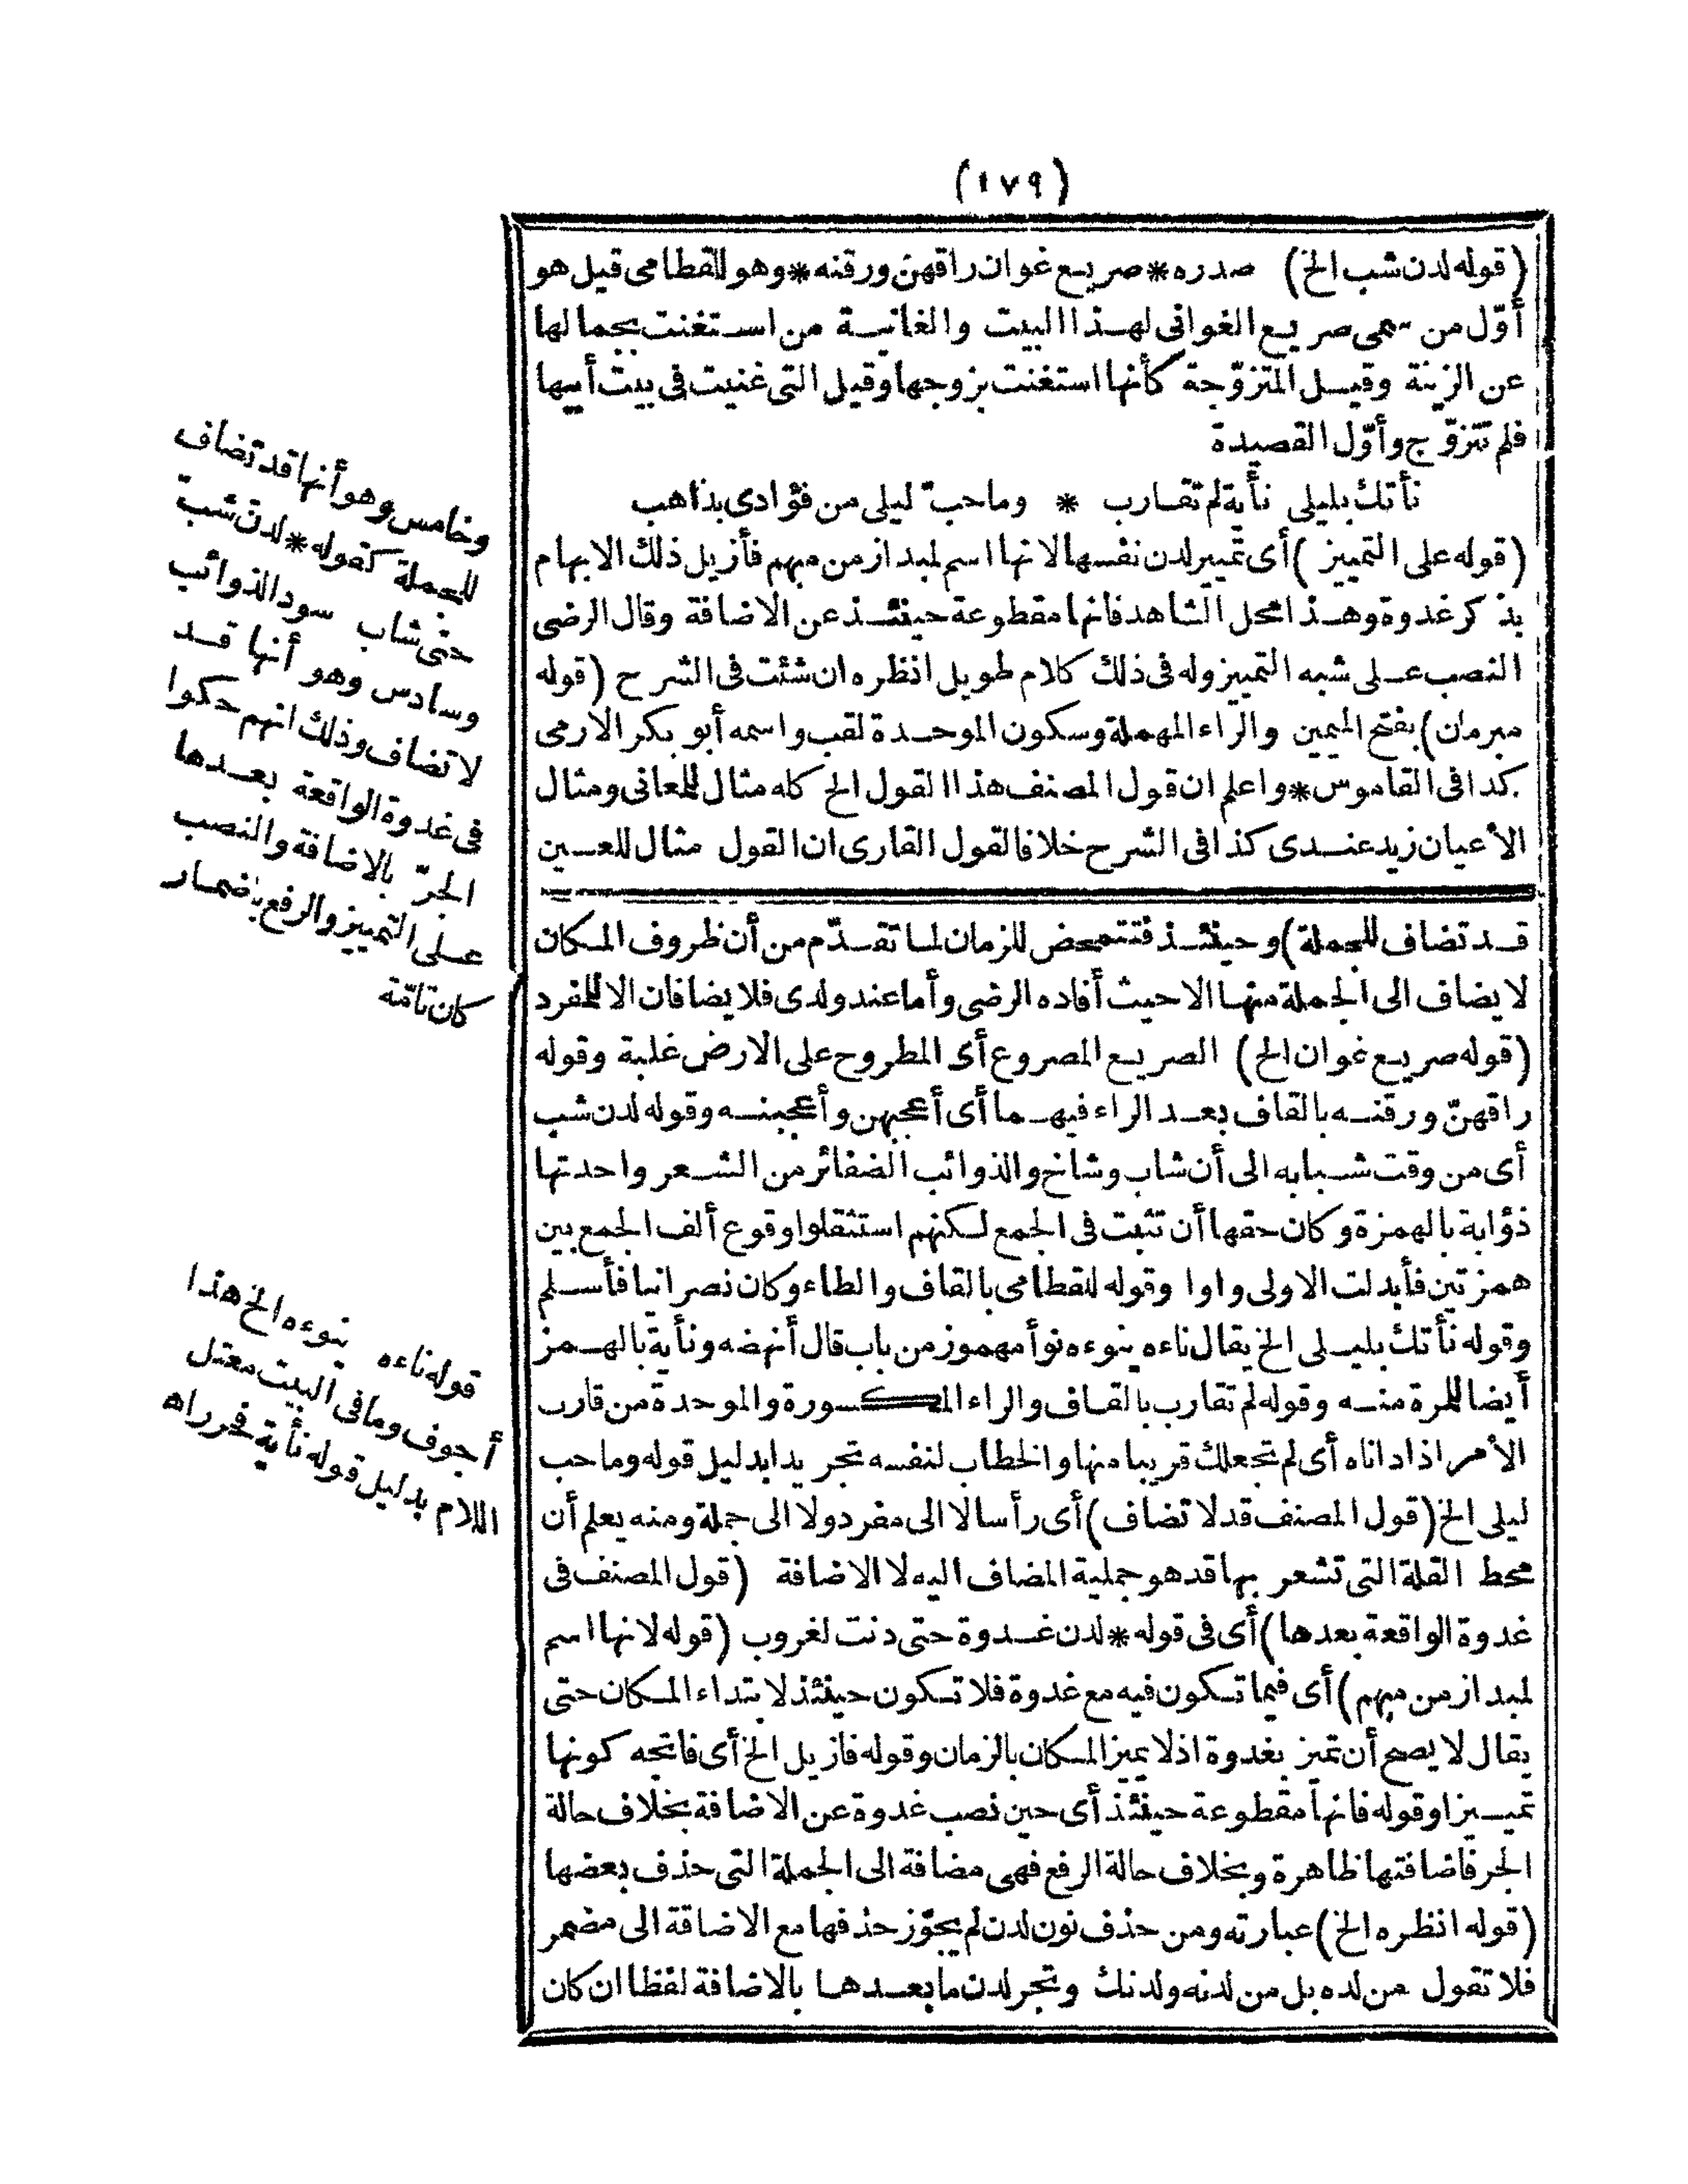 (١٧٩)
(قوله لدن شب الخ) صدره * صريع غوان راقهنّ ورقنه * وهو للقطامى قيل هو
أوّل من سمى صريع الغوانى لهذا البيت والغانية من استغنت بجمالها
عن الزينة وقيل المتزوّجة كأنها استغنت بزوجها وقيل التى غنيت فى بيت أبيها
فلم تتزوّج وأوّل القصيدة
نأتك بليلى نأية لم تقارب * وما حبّ ليلى من فؤادى بذاهب
(قوله على التمييز) أى تمييز لدن نفسها لانها اسم لمبدا زمن مبهم فأزيل ذلك الابهام
بذكر غدوة وهذا محل الشاهد فانها مقطوعة حينئذ عن الاضافة وقال الرضى
النصب على شبه التمييز وله فى ذلك كلام طويل انظره ان شئت فى الشرح (قوله
مبرمان) بفتح الميمين والراء المهملة وسكون الموحدة لقب واسمه أبو بكر الازمى
كذا فى القاموس * واعلم ان قول المصنف هذا القول الخ كله مثال للمعانى ومثال
الأعيان زيد عندى كذا فى الشرح خلافا لقول القارى ان القول مثال للعين
قد تضاف للجملة) وحينئذ فتتمحض للزمان لما تقدّم من أن ظروف المكان
لا يضاف الى الجملة منها الا حيث أفاده الرضى وأما عند ولدى فلا يضافان الا للمفرد
(قوله صريع غوان الخ) الصريع المصروع أى المطروح على الارض غلبة وقوله
راقهنّ ورقنه بالقاف بعد الراء فيهما أى أعجبهن وأعجبنه وقوله لدن شب
أى من وقت شبابه الى أن شاب وشاخ والذوائب الضفائر من الشعر واحدتها
ذؤابة بالهمزة وكان حقها أن تثبت فى الجمع لكنهم استثقلوا وقوع ألف الجمع بين
همزتين فأبدلت الاولى واوا وقوله للقطامى بالقاف والطاء وكان نصرانيا فأسلم
وقوله نأتك بليلى الخ يقال ناءه ينوءه نوأ مهموز من باب قال أنهضه ونأية بالهمز
أيضا للمرة منه وقوله لم تقارب بالقاف والراء المكسورة والموحدة من قارب
الأمر اذا داناه أى لم تجعلك قريبا منها والخطاب لنفسه تجريدا بدليل قوله وما حب
ليلى الخ (قول المصنف قد لا تضاف) أى رأسا لا الى مفرد ولا الى جملة ومنه يعلم أن
محط القلة التى تشعر بها قد هو جملية المضاف اليه لا الاضافة (قول المصنف فى
غدوة الواقعة بعدها) أى فى قوله * لدن غدوة حتى دنت لغروب (قوله لانها اسم
لمبدا زمن مبهم) أى فيما تكون فيه مع غدوة فلا تكون حينئذ لابتداء المكان حتى
يقال لا يصح أن تميز بغدوة اذ لا يميز المكان بالزمان وقوله فازيل الخ أى فاتجه كونها
تمييزا وقوله فانها مقطوعة حينئذ أى حين نصب غدوة عن الاضافة بخلاف حالة
الجر فاضافتها ظاهرة وبخلاف حالة الرفع فهى مضافة الى الجملة التى حذف بعضها
(قوله انظره الخ) عبارته ومن حذف نون لدن لم يجوّز حذفها مع الاضافة الى مضمر
فلا تقول من لده بل من لدنه ولدنك وتجر لدن ما بعدها بالاضافة لفظا ان كان
وخامس وهو أنها قد تضاف
للجملة كقوله * لدن شبّ
حتى شاب سود الذوائب
وسادس وهو أنها قد
لا تضاف وذلك انهم حكوا
فى غدوة الواقعة بعدها
الجرّ بالاضافة والنصب
على التمييز والرفع باضمار
كان تامّة
قوله ناءه ينوءه الخ هذا
أجوف وما فى البيت معتل
اللام بدليل قوله نأية فحرره اه